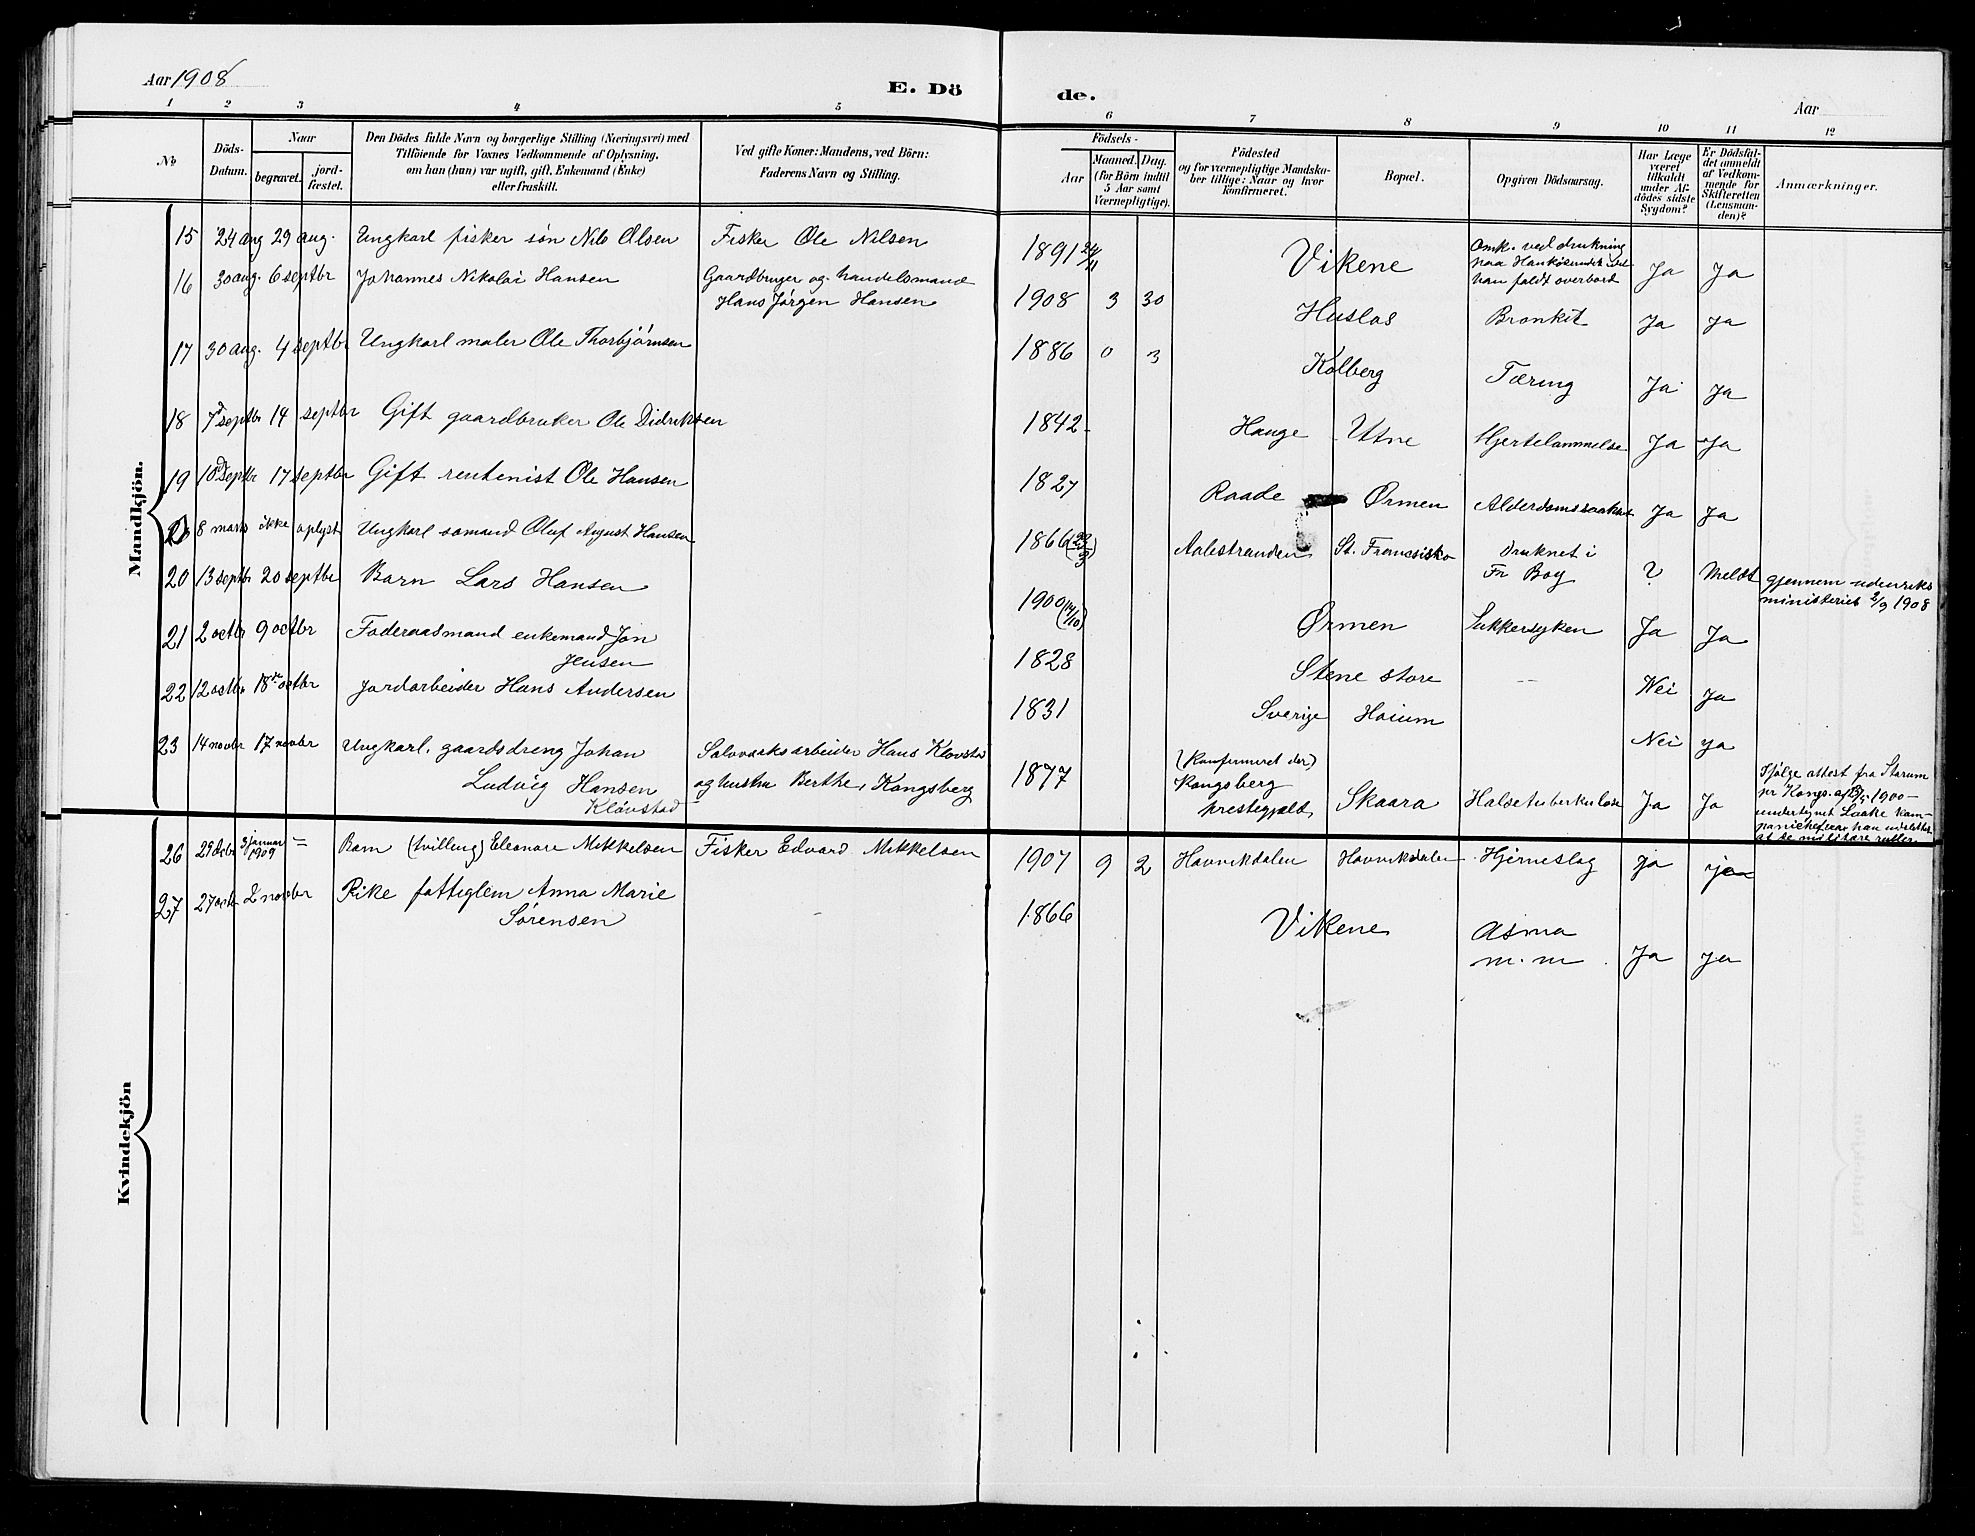 Aar 1908
E. Dö
de.
Aar
1 2 3 4 5 6 7 8 9 10 11 12
No
Döds-
Datum.
Naar
begravet.
jord-
fæstet.
Den Dödes fulde Navn og borgerlige Stilling (Næringsvei) med
Tilföiende for Voxnes Vedkommende af Oplysning,
om han (hun) var ugift, gift, Enkemand (Enke)
eller fraskilt.
Ved gifte Koner: Mandens, ved Börn:
Faderens Navn og Stilling.
Födsels-
Aar
Maaned. Dag.
(for Börn indtil
5 Aar samt
Værnepligtige).
Födested
og for værnepligtige Mandska-
ber tillige: Naar og hvor
konfirmeret.
Bopæl.
Opgiven Dödsaarsag.
Har Læge
været
tilkaldt
under Af-
dödes sidste
Sygdom?
Er Dödsfal-
det anmeldt
af Vedkom-
mende for
Skifteretten
(Lensman-
den)?
Anmærkninger.
Mandkjön.
15 24 aug 29 aug. Ungkarl fisker søn Nils Olsen Fisker Ole Nilsen 1891 24/11 Vikene Omk. ved drukning
paa Hankøsundet idet
han faldt overbord Ja Ja
16 30 aug. 6 septbr Johannes Nikolai Hansen Gaardbruger og handelsmand
Hans Jørgen Hansen 1908 3 30 Huslos Bronkit Ja Ja
17 30 aug. 4 septbr Ungkarl maler Ole Thorbjørnsen 1886 0 3 Kolberg Tæring Ja Ja
18 7 septbr 14 septbr Gift gaardbruker Ole Didriksen 1842 Hauge Utne Hjertelammelse Ja Ja
19 10 septbr 17 septbr Gift rentenist Ole Hansen 1827 Raade Ørmen Alderdomssvakhet Ja Ja
8 marts ikke oplyst Ungkarl sømand Oluf August Hansen 1866 Aalestranden St. Francisko druknet i
Fr Bay ? Meldt gjennem udenriks
ministeriet 2/9 1908
20 13 septbr 20 septbr Barn Lars Hansen 1900 (14/10) Ørmen Sukkersyken Ja Ja
21 2 octbr 9 octbr Føderaasmand enkemand Jon
Jensen 1828 Stene store — Nei Ja
22 12 octbr 18de octbr Jordarbeider Hans Andersen 1831 Sverige Haium Nei ja
23 14 novbr 17 novbr Ungkarl, gaardsdreng Johan
Ludvig Hansen
Kløvstad Sølvværksarbeider Hans Kløvstad
og hustru Berthe, Kongsberg 1877 (Konfirmeret der)
Kongsberg
prestegjeldt Skaara Halsetuberkulose Ja Ja Ifølge attest fra Starum
pr Kongs. 1900 —
undertegnet Laake kom-
panichef var han udslettet
at de militære ruller
Kvindekjön
26 29 Decbr 3 januar
1909 = Barn (tvilling) Eleonare Mikkelsen Fisker Edvard Mikkelsen 1907 9 2 Havnikdalen Havnikdalen Hjerneslag ja ja
27 27 octbr 2 novbr Pike fattiglem Anna Marie
Sørensen — 1866 Vikene Asma
m.m Ja Ja